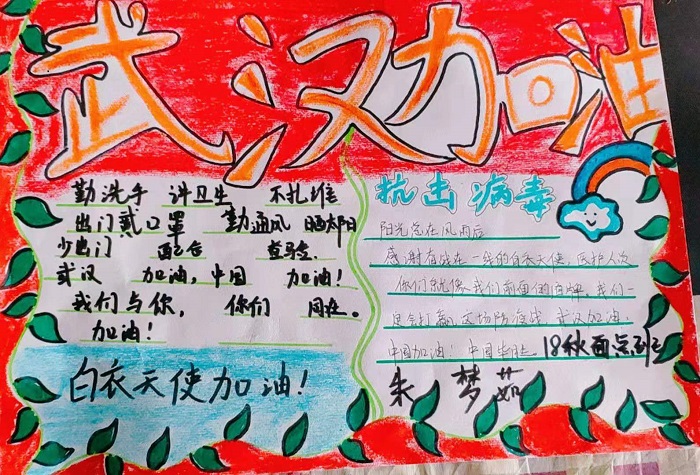 武汉加油
勤洗手 讲卫生 不扎堆
出门戴口罩 勤通风 晒太阳
少出门 配合 查验.
武汉 加油,中国 加油!
我们与你, 你们 同在。
加油!
白衣天使加油!
抗击病毒
阳光总在风雨后
感谢有战在一线的白衣天使,医护人次
你们就像我们前面的盾牌,我们一
定会打赢这场防疫战 武汉加油.
中国加油! 中国必胜 18秋面点
朱 梦 茹